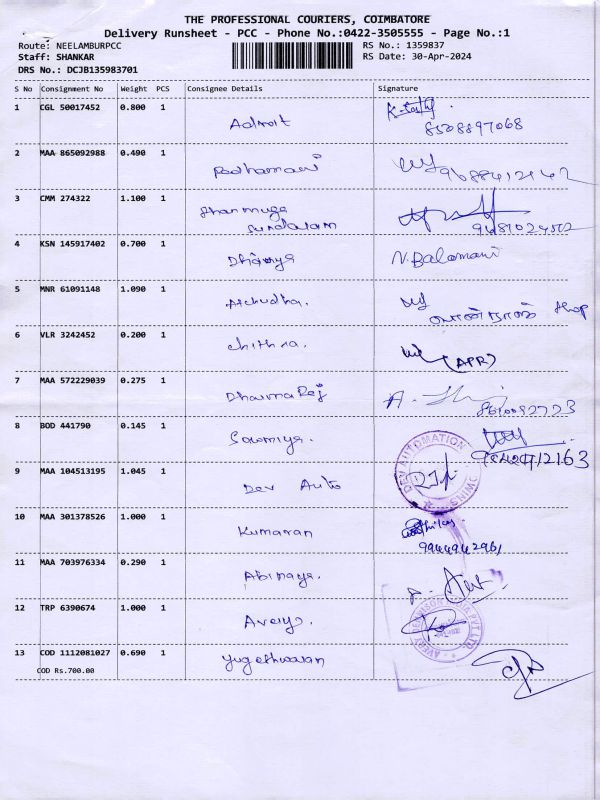 THE PROFESSIONAL COURIERS, COIMBATORE
Delivery Runsheet - PCC - Phone No.:0422-3505555 - Page No.:1
Route: NEELAMBURPCC RS No.: 1359837
Staff: SHANKAR RS Date: 30-Apr-2024
DRS No.: DCJB135983701
S No Consignment No Weight PCS Consignee Details Signature
1 CGL 50017452 0.800 1
Adroit 8508897068
2 MAA 865092988 0.490 1
Padhamani
3 CMM 274322 1.100 1
Shanmuga
Sundaram
4 KSN 145917402 0.700 1
Dhivya N.Balamani
5 MNR 61091148 1.090 1
Atchudha. shop
6 VLR 3242452 0.200 1
chithra. (APR)
7 MAA 572229039 0.275 1
Dharma Raj
8 BOD 441790 0.145 1
Sowmiya.
9 MAA 104513195 1.045 1
Dev Auto
DEV AUTOMATION
10 MAA 301378526 1.000 1
Kumaran 9944942961
11 MAA 703976334 0.290 1
Abinaya.
12 TRP 6390674 1.000 1
Avery.
13 COD 1112081027 0.690 1
Yugeshwaran
COD Rs.700.00